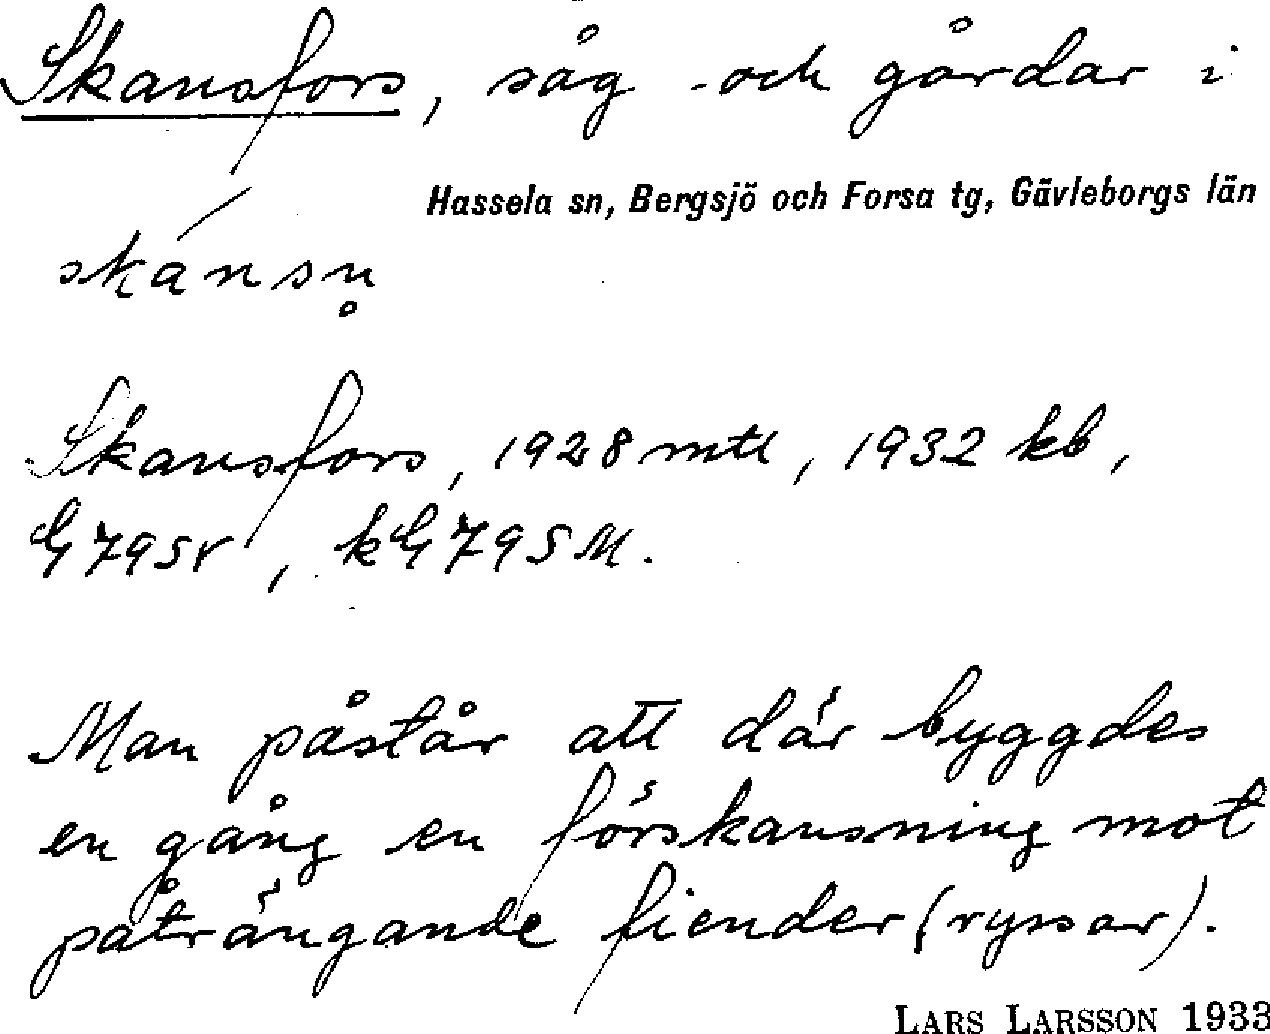 Skansfors, såg och gårdar i
Hassela sn, Bergsjö och Forsa tg, Gävleborgs län
skánsn̥
Skansfors, 1928 mtl, 1932 kb,
G 795 r, kG 795 M.
Man påstår att där byggdes
en gång en förskansning mot
påträngande fiender (ryssar).
LARS LARSSON 1933